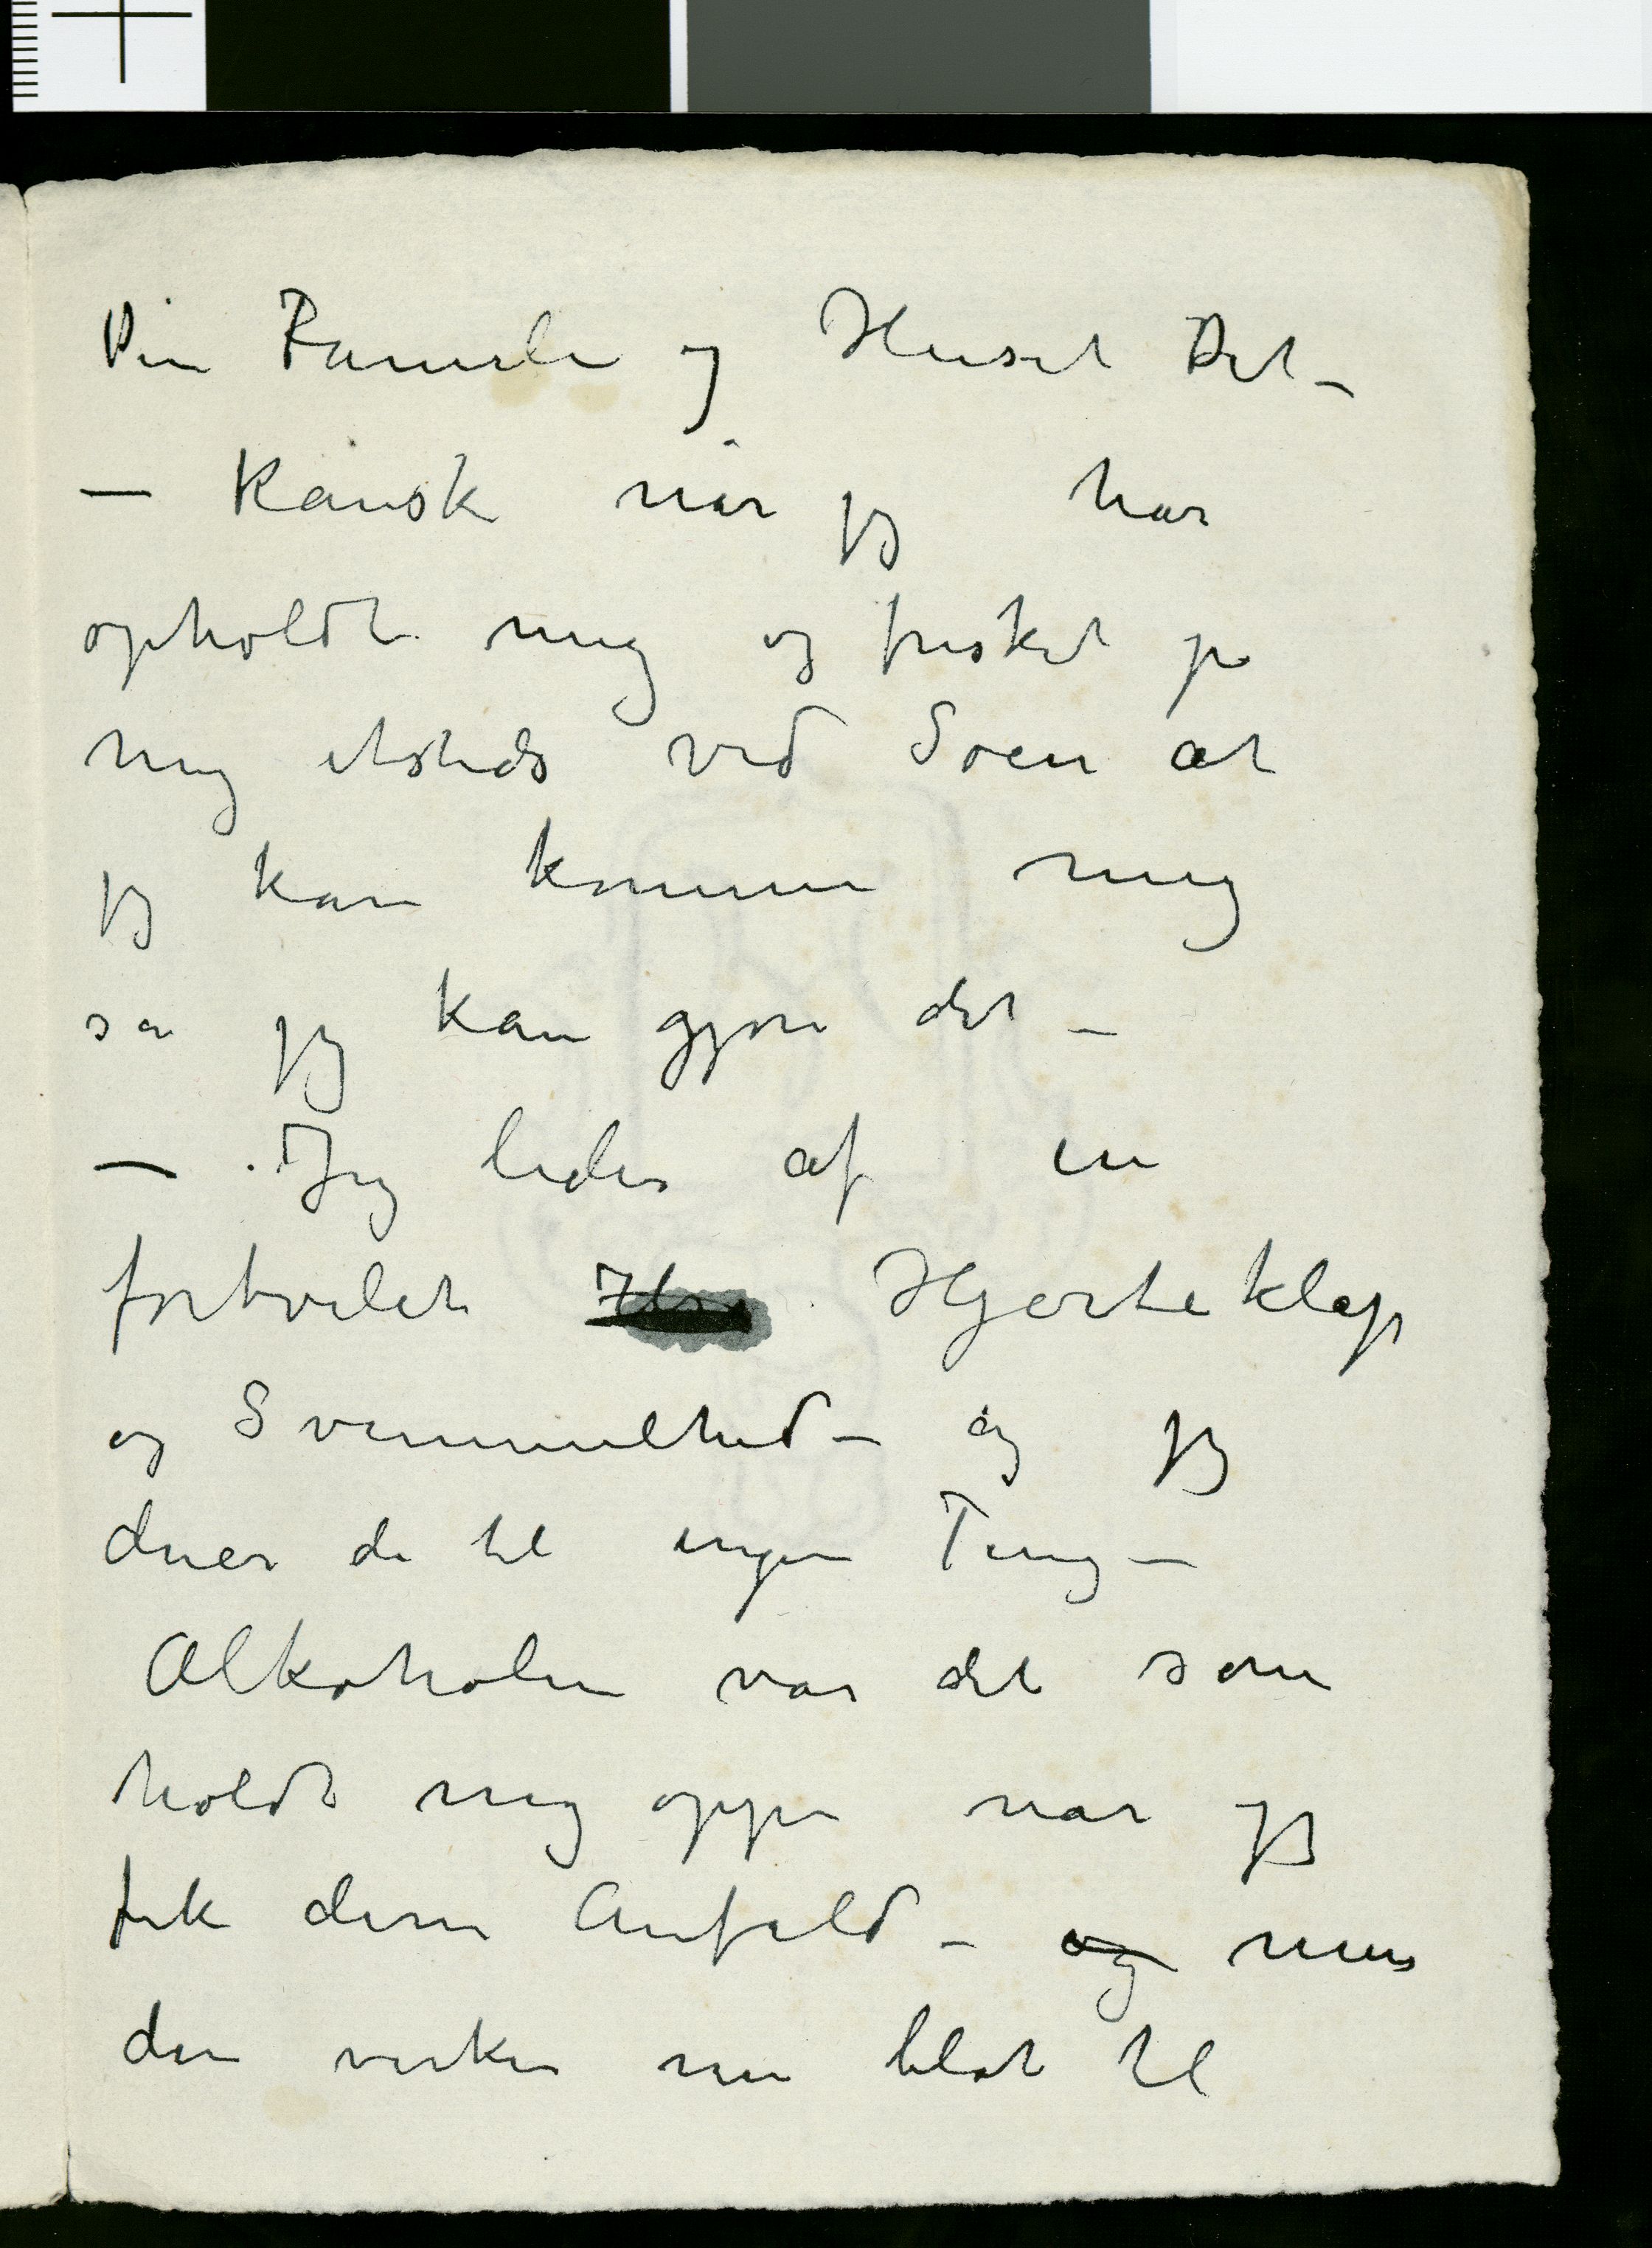 Din Familie og Huset Dit –
– Kanske når jeg har
opholdt mig og frisket på
mig etsteds ved Søen at
jeg kan komme mig
så jeg kan gjøre det –
– Jeg lider af en
fortvilet Hjerteklap
og Svimmelhed – og jeg
duer da til ingen Ting –
Alkoholen var det som
holdt mig oppe når jeg
fik disse Anfald – og men
den virker nu blot til